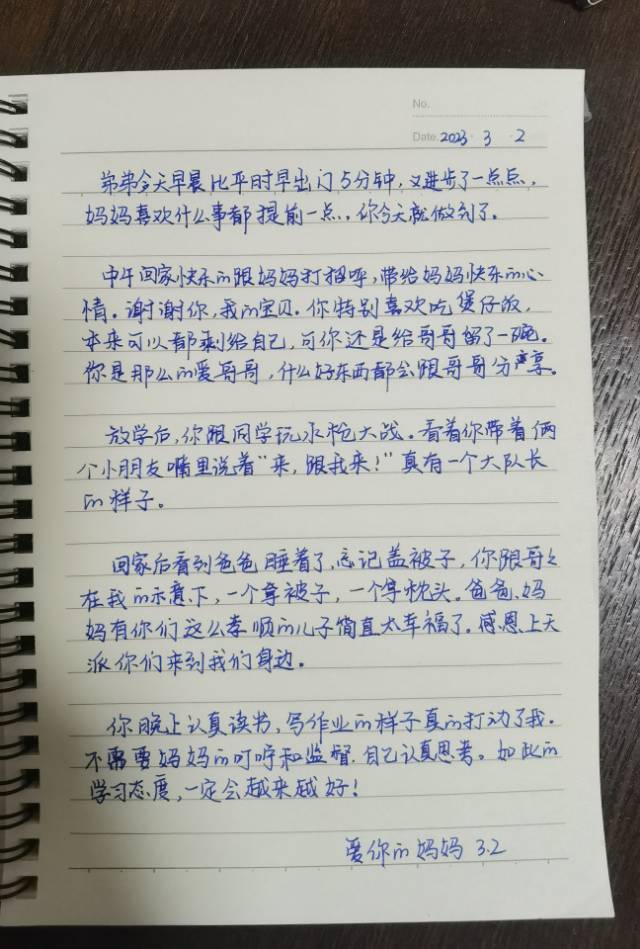 No.
Date. 2023 3 2
弟弟今天早晨比平时早出门5分钟，又进步了一点点，
妈妈喜欢什么事都提前一点，你今天就做到了。
中午回家快乐的跟妈妈打招呼，带给妈妈快乐的心
情。谢谢你，我的宝贝。你特别喜欢吃煲仔饭，
本来可以都剩给自己，可你还是给哥哥留了一碗。
你是那么的爱哥哥，什么好东西都会跟哥哥分享。
放学后，你跟同学玩水枪大战。看着你带着俩
个小朋友嘴里说着“来，跟我来！”真有一个大队长
的样子。
回家后看到爸爸睡着了，忘记盖被子，你跟哥々
在我的示意下，一个拿被子，一个拿枕头。爸爸、妈
妈有你们这么孝顺的儿子简直太幸福了。感恩上天
派你们来到我们身边。
你晚上认真读书，写作业的样子真的打动了我。
不需要妈妈的叮咛和监督，自己认真思考。如此的
学习态度，一定会越来越好！
爱你的妈妈 3.2